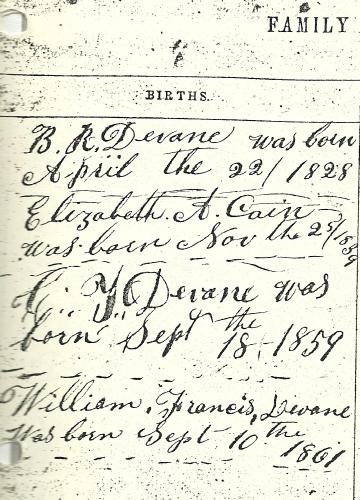 FAMILY
BIRTHS.
B. R. Devane was born
April the 22/1828
Elizabeth. A. Cain
was born Nov the 25/
Y Devane was
born Sept the
18, 1859
William. Francis. Devane
Was born Sept 10 the
1861